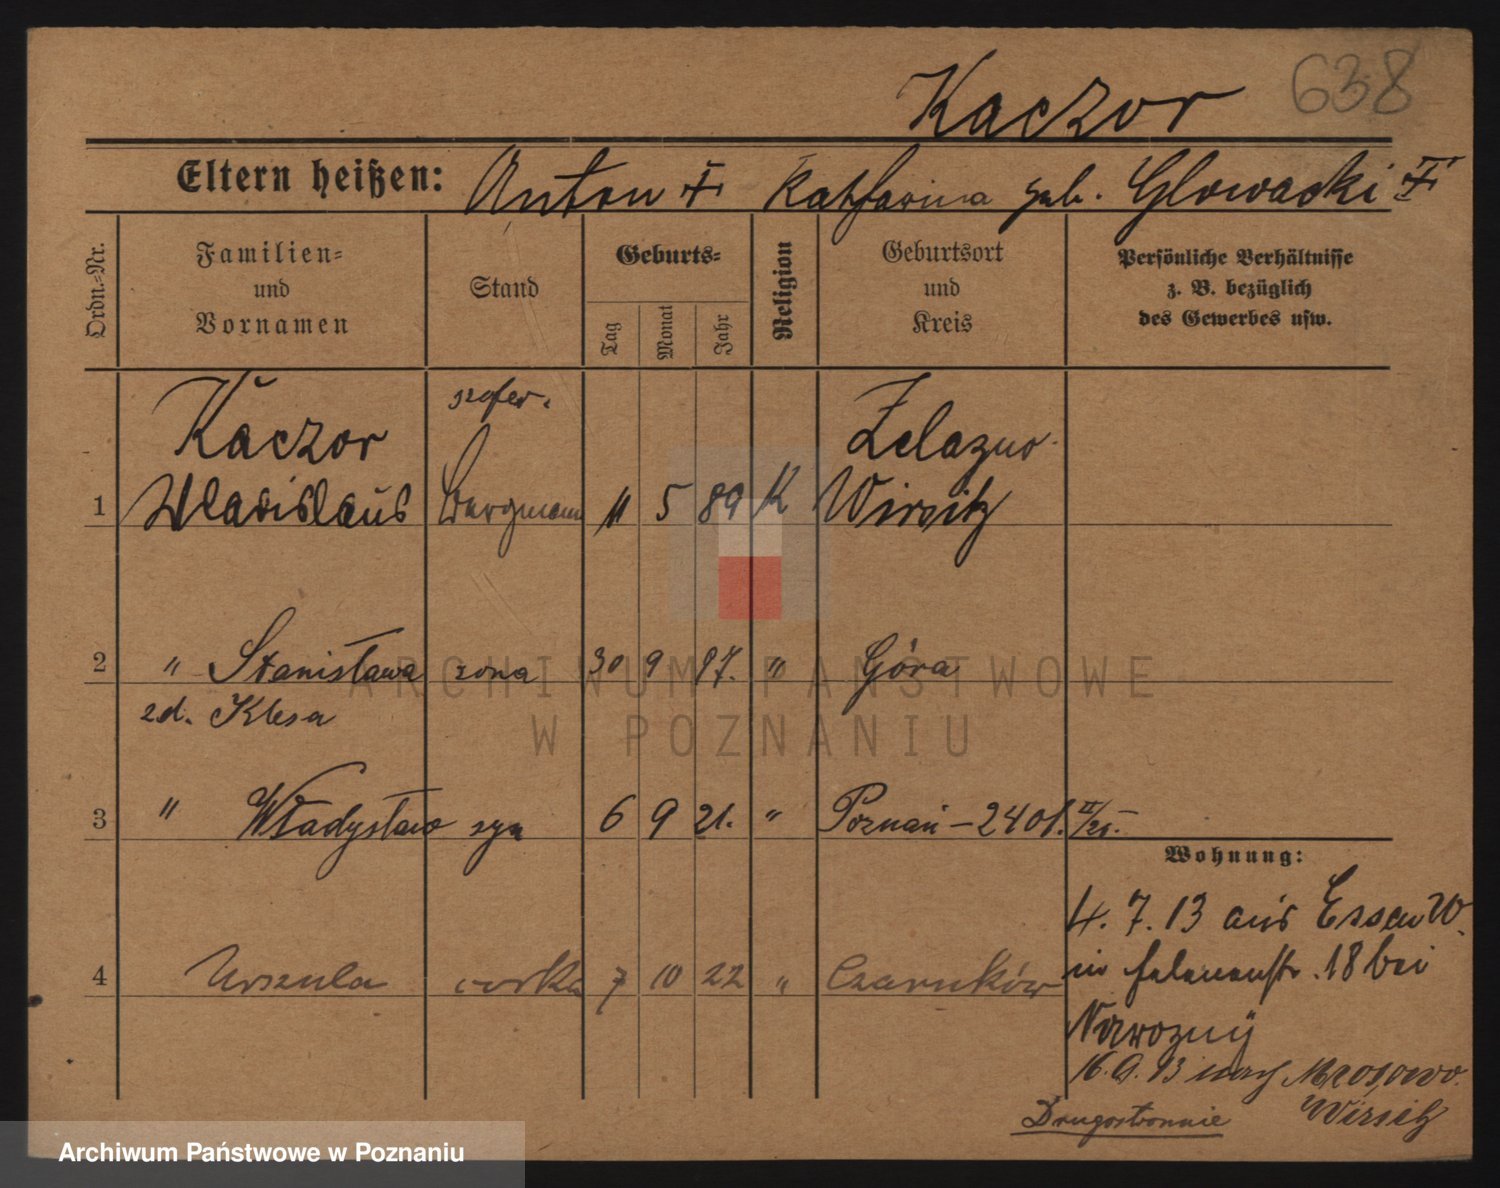 638
Kaczor
Eltern heißen: Anton † Katharina geb. Glowacki †
Ordn.-Nr.
Familien= und Vornamen
Stand
Geburts=
Tag
Monat
Jahr
Religion
Geburtsort und Kreis
Persönliche Verhältnisse z. B. bezüglich des Gewerbes usw.
szofer.
Kaczor Zelazno
1 Wladislaus Bergmann 11 5 89 K Wirsitz
2 " Stanisława zona 30 9 97. " Góra
zd. Klesa
3 " Władysław syn 6 9 21. " Poznań – 2401. II/21.
Wohnung:
4. 7. 13 aus Essen W.
4 Urszula corka 7 10 22 " Czarnków
in 18 bei
Nawozny
16. 9. 13 nach Mrozowo.
Wirsitz
Drugostronnie
ARCHIWUM PAŃSTWOWE
W POZNANIU
Archiwum Państwowe w Poznaniu